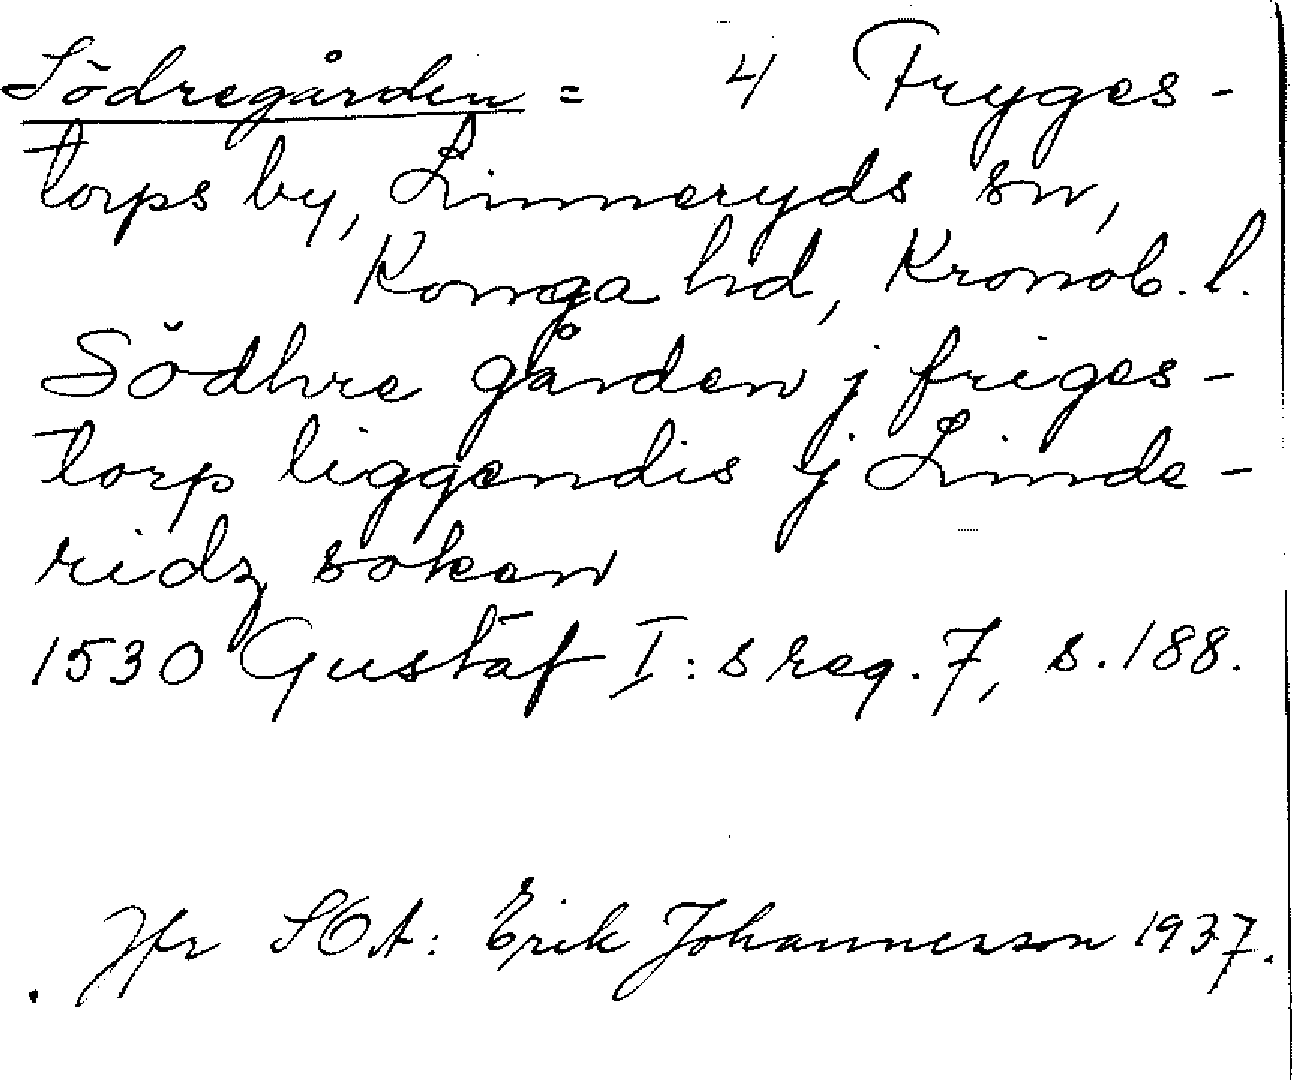 Södregården = 4 Fryges-
torps by, Linneryds sn,
Konga hd, Kronob. l.
Södhre gården j friges-
torp liggendis ij Linde-
ridz soken
1530 Gustaf I:s reg. 7, s. 188.
Jfr SOA: Erik Johannesson 1937.